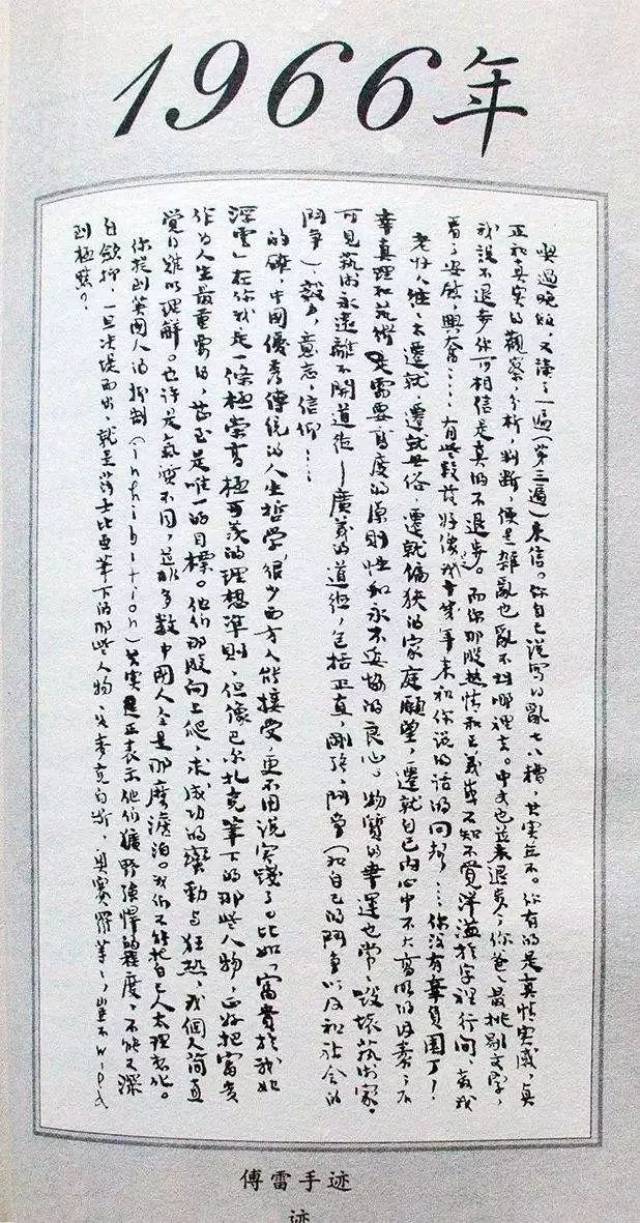 1966年
喫過晚飯，又讀了一遍（第三遍）來信。你自己說寫得亂七八糟，其實並不。你有的是真情實感，真
正和真實的觀察，分析，判斷，便是雜亂也亂不到哪裡去。中文也並未退步；你爸爸最挑剔文字，
我說不退步你可相信是真的不退步。而你那股熱情和正義感不知不覺洋溢於字裡行間，教我
看了安慰，興奮……有些段落好像我十幾年來和你說的話的回聲……你沒有辜負園丁！
老好人往往太遷就，遷就世俗，遷就偏狹的家庭願望，遷就自己內心中不大高明的因素；不
幸真理和藝術需要高度的原則性和永不妥協的良心。物質的幸運也常常毀壞藝術家。
可見藝術永遠離不開道德——廣義的道德，包括正直，剛強，鬥爭（和自己的鬥爭以及和社會的
鬥爭），毅力，意志，信仰……
的確，中國優秀傳統的人生哲學，很少西方人能接受，更不用說實踐了。比如「富貴於我如
浮雲」在你我是一條極崇高極可羨的理想準則，但像巴爾扎克筆下的那些人物，正好把富貴
作為人生最重要的，甚至是唯一的目標。他們那股向上爬，求成功的蠻勁與狂熱，我個人簡直
覺得難以理解。也許是氣質不同，並非多數中國人全是那麼澹泊。我們不能把自己人太理想化。
你提到英國人的抑制（inhibition）其實正表示他們獷野強悍的程度，不能不深
自斂抑，一旦決堤而出，就是莎士比亞筆下的那些人物，如麥克白斯、奧賽羅等等，豈不wild
到極點？
傅雷手迹
迹